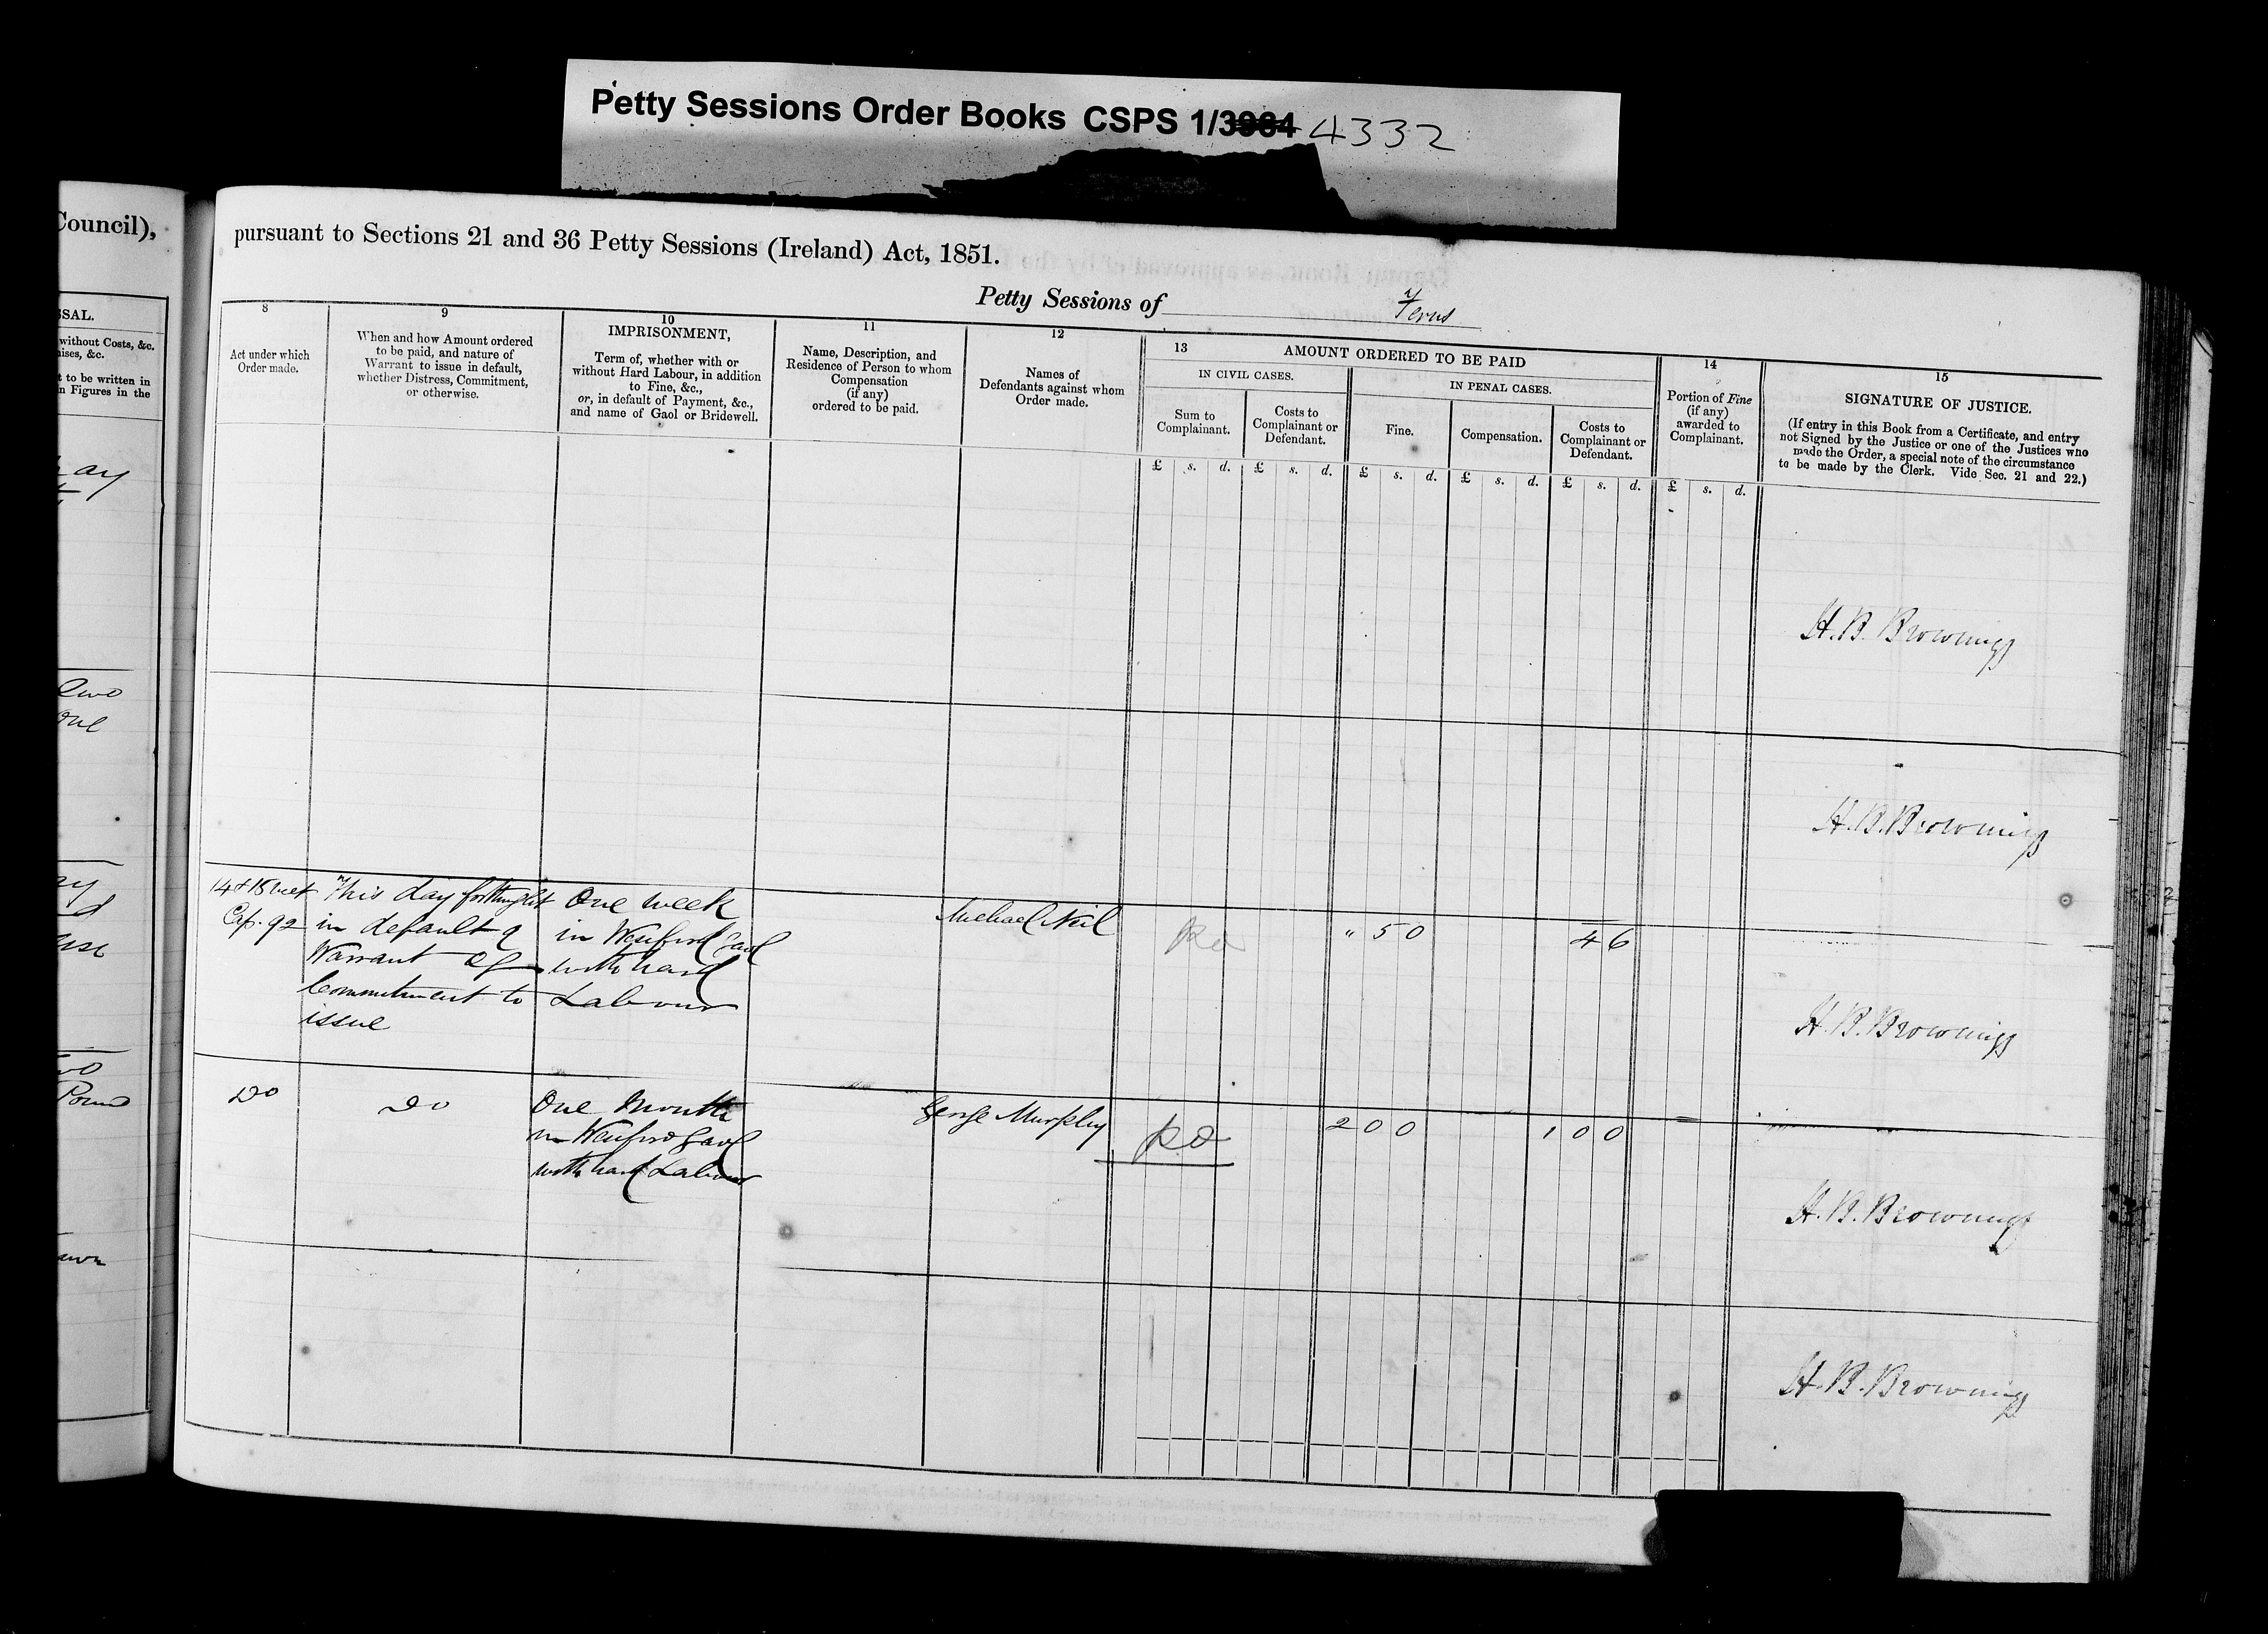 Petty Sessions Order Books CSPS 1/3984 4332
Council),
pursuant to Sections 21 and 36 Petty Sessions (Ireland) Act, 1851.
Petty Sessions of Ferns
SSAL.
without Costs, &c.
ises, &c.
t to be written in
n Figures in the
8
Act under which
Order made.
9
When and how Amount ordered
to be paid, and nature of
Warrant to issue in default,
whether Distress, Commitment,
or otherwise.
10
IMPRISONMENT,
Term of, whether with or
without Hard Labour, in addition
to Fine, &c.,
or, in default of Payment, &c.,
and name of Gaol or Bridewell.
11
Name, Description, and
Residence of Person to whom
Compensation
(if any)
ordered to be paid.
12
Names of
Defendants against whom
Order made.
13 AMOUNT ORDERED TO BE PAID
IN CIVIL CASES.
IN PENAL CASES.
Sum to
Complainant.
Costs to
Complainant or
Defendant.
Fine.
Compensation.
Costs to
Complainant or
Defendant.
14
Portion of Fine
(if any)
awarded to
Complainant.
15
SIGNATURE OF JUSTICE.
(If entry in this Book from a Certificate, and entry
not Signed by the Justice or one of the Justices who
made the Order, a special note of the circumstance
to be made by the Clerk. Vide Sec. 21 and 22.)
£ s. d. £ s. d. £ s. d. £ s. d. £ s. d. £ s. d.
ay
H. B. Brownrigg
two
one
H. B. Brownrigg
14 & 15 Vict
Cap. 92
This day fortnight
in default a
Warrant of
Commitment to
issue
One week
in Wexford Gaol
with hard
Labour
Michael Neil
Pd
" 5 0
4 6
H. B. Brownrigg
Pound
Do
Do
One Month
in Wexford Gaol
with hard Labour
George Murphy
Pd
2 0 0
1 0 0
H. B. Brownrigg
H. B. Brownrigg